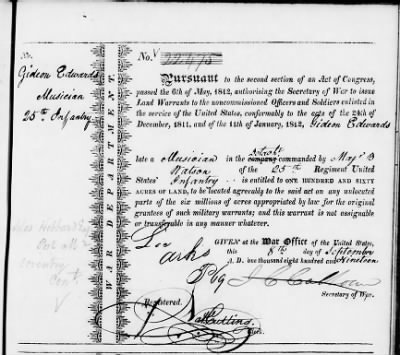 No.
Gideon Edwards
Musician
25th Infantry
WAR DEPARTMENT.
No. 22475
Pursuant to the second section of an Act of Congress,
passed the 6th of May, 1812, authorising the Secretary of War to issue
Land Warrants to the noncommissioned Officers and Soldiers enlisted in
the service of the United States, conformably to the acts of the 24th of
December, 1811, and of the 11th of January, 1812, Gideon Edwards
late a Musician in the company commanded by Maj B
Watson of the 25th Regiment United
States' Infantry is entitled to ONE HUNDRED AND SIXTY
ACRES OF LAND, to be located agreeably to the said act on any unlocated
parts of the six millions of acres appropriated by law for the original
grantees of such military warrants; and this warrant is not assignable
or transferable in any manner whatever.
GIVEN at the War Office of the United States,
this 8th day of September
A. D. one thousand eight hundred and Nineteen
J C Calhoun
Secretary of War.
Registered.
Cutting
Clk.
Coventry